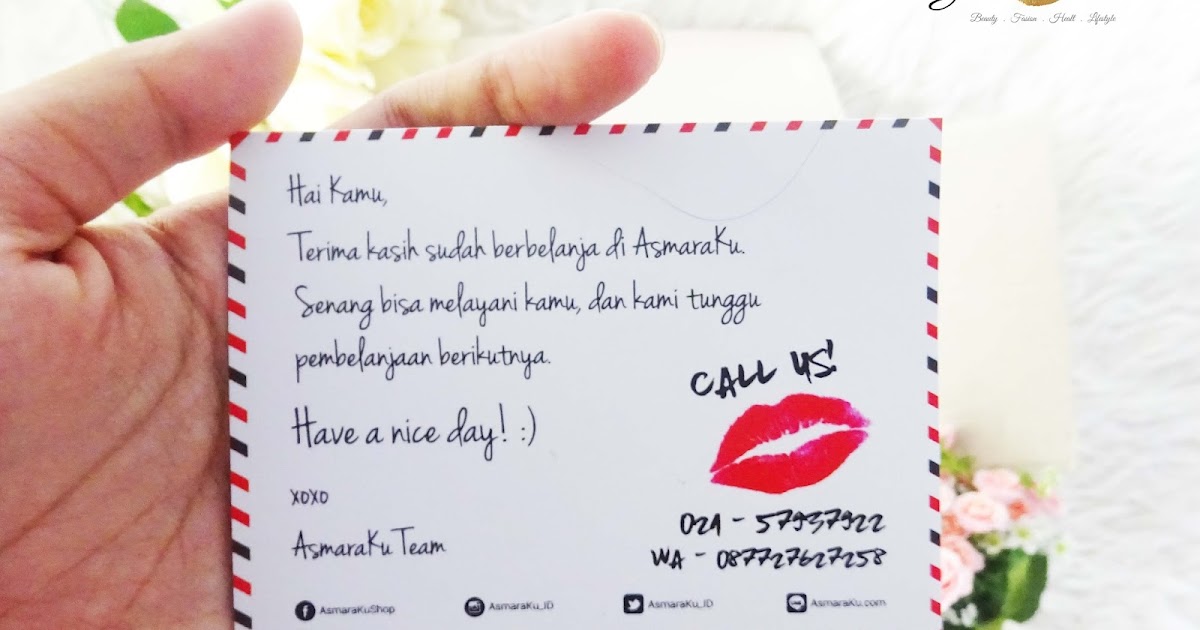 Beauty . Fasion . Healt . Lifestyle
Hai Kamu,
Terima kasih sudah berbelanja di AsmaraKu.
Senang bisa melayani kamu, dan kami tunggu
pembelanjaan berikutnya.
Have a nice day! :)
xoxo
AsmaraKu Team
CALL US!
021 - 57937922
WA - 087727627258
AsmaraKuShop
AsmaraKu_ID
AsmaraKu_ID
AsmaraKu.com